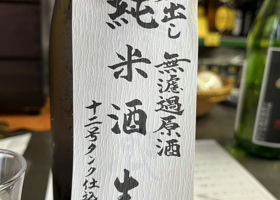 出し
無濾過原酒
純米酒生
十二号タンク仕込